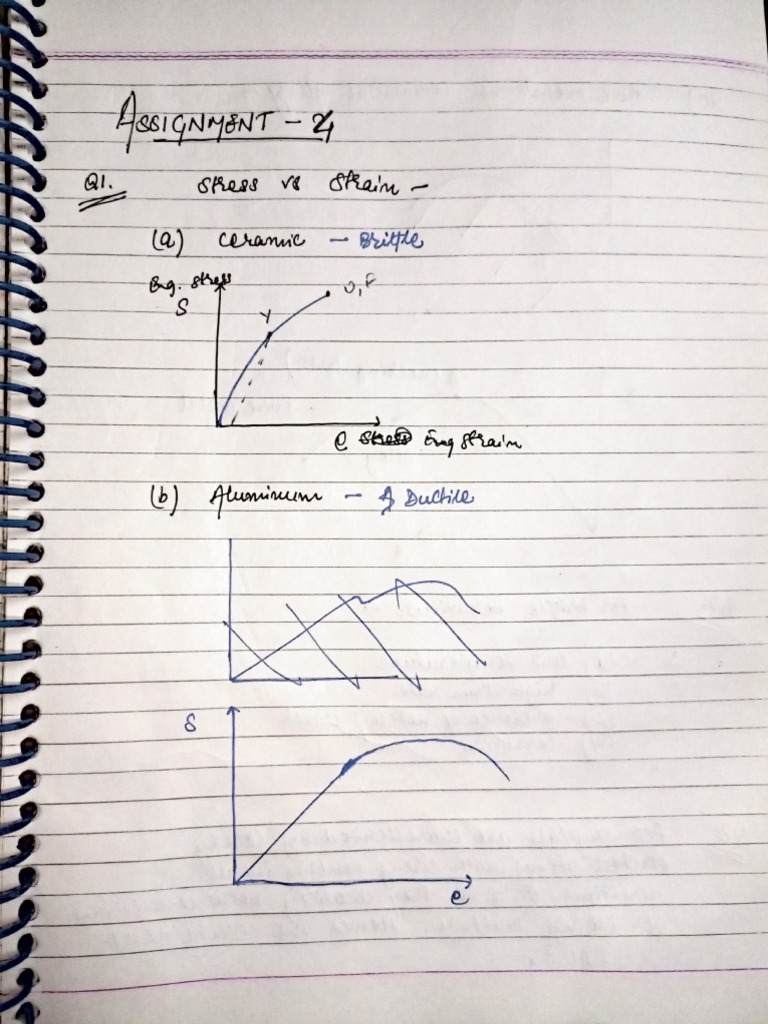 ASSIGNMENT - 4
Q1. Stress vs Strain -
(a) Ceramic - Brittle
Eng. Stress
S
Y
U, F
e Eng Strain
(b) Aluminum - Ductile
S
e